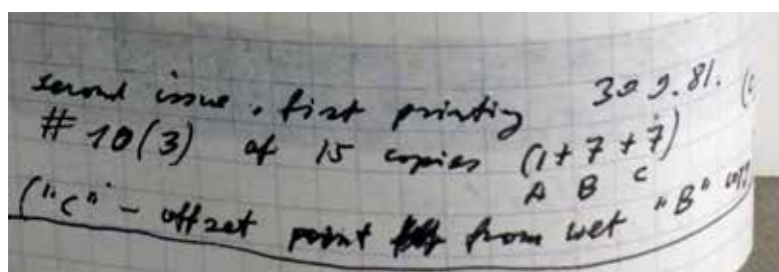 second issue, first printing 30 9. 81. (
# 10 (3) of 15 copies (1 + 7 + 7)
A B C
("C" - offset point from wet "B"